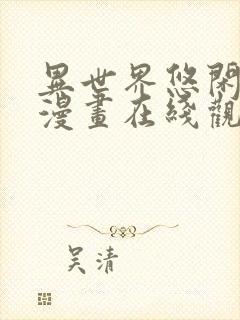 異世界悠閑
漫畫在綫觀
吴清